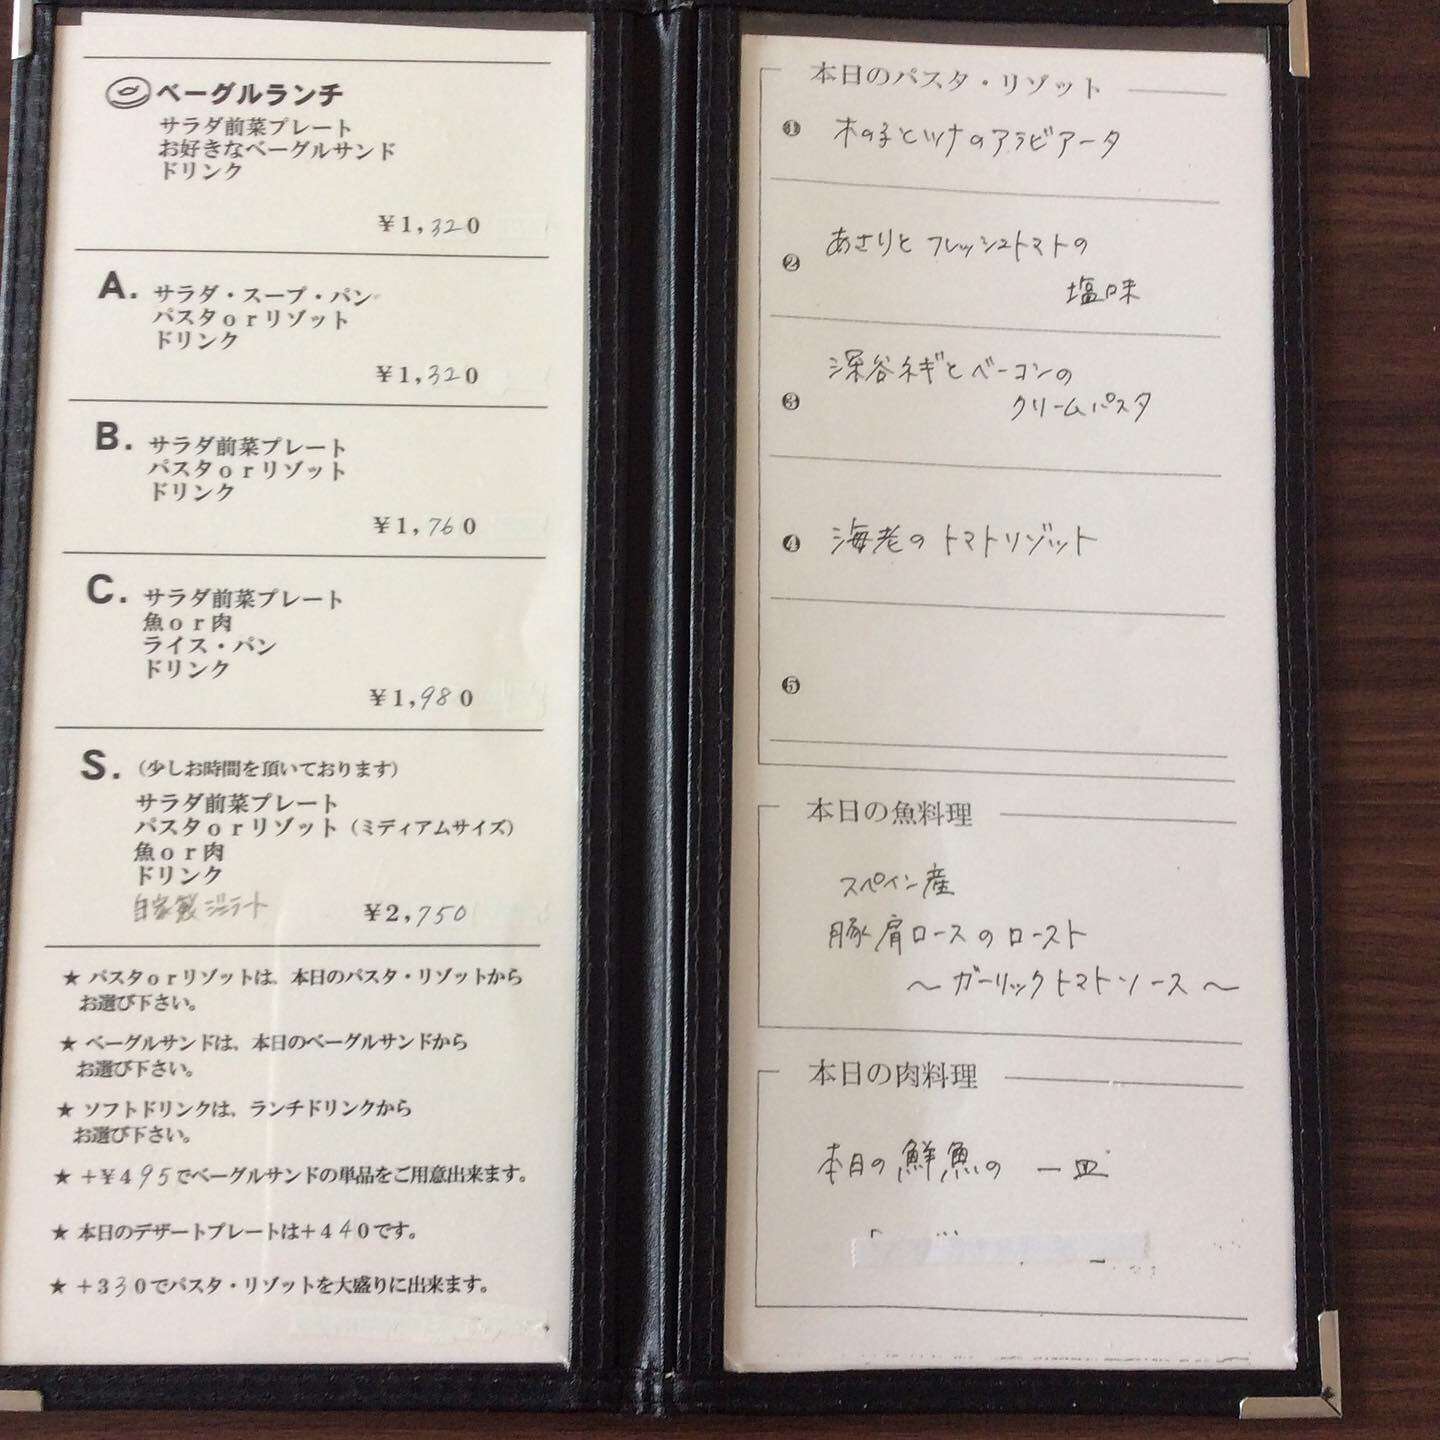 ベーグルランチ
サラダ前菜プレート
お好きなベーグルサンド
ドリンク
¥1,320
A. サラダ・スープ・パン
パスタorリゾット
ドリンク
¥1,320
B. サラダ前菜プレート
パスタorリゾット
ドリンク
¥1,760
C. サラダ前菜プレート
魚or肉
ライス・パン
ドリンク
¥1,980
S. (少しお時間を頂いております)
サラダ前菜プレート
パスタorリゾット(ミディアムサイズ)
魚or肉
ドリンク
自家製ジェラート
¥2,750
★ パスタorリゾットは、本日のパスタ・リゾットから
お選び下さい。
★ ベーグルサンドは、本日のベーグルサンドから
お選び下さい。
★ ソフトドリンクは、ランチドリンクから
お選び下さい。
★ +¥495でベーグルサンドの単品をご用意出来ます。
★ 本日のデザートプレートは+440です。
★ +330でパスタ・リゾットを大盛りに出来ます。
本日のパスタ・リゾット
❶ 木の子とツナのアラビアータ
❷ あさりとフレッシュトマトの
塩味
❸ 深谷ネギとベーコンの
クリームパスタ
❹ 海老のトマトリゾット
❺
本日の魚料理
スペイン産
豚肩ロースのロースト
〜ガーリックトマトソース〜
本日の肉料理
本日の鮮魚の一皿